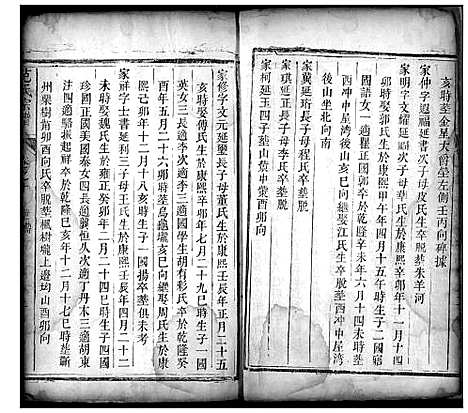 亥時葬金星大爵塋左側壬丙向碑據
家仲字遐福延書次子母皮氏生卒脫葬朱羊河
家明字文耀延儼次子母華氏生於康熙辛卯年十一月
時娶郭氏生於康熙甲午年四月十五午時生子一國
國語女一適瞿正國郭卒於辛未年六月十四未時葬
西冲中星灣後山亥巳向繼娶江氏生卒葬西冲中星灣
後山坐北向南
家冀延珩長子母程氏生卒葬脫
家琪延正長子母李氏卒葬脫
家柯延玉四子葬山黨中棠酉卯向
家修字文元延舉長子母董氏生於康熙壬辰年正月二十五
亥時娶傅氏生於康熙辛卯年七月二十九巳時生子一國
英女三長適李次適國學生胡有彩氏卒於乾隆癸
酉年五月二十卯時葬烏龜墩亥巳向繼娶周氏生於康
熙己卯年十二月十八亥時生子一國揚卒葬俱未考
家祥字士書延利三子母王氏生於康熙壬辰年四月二十二
未時娶魏氏生於雍正癸卯年二月初二辰時生子四國
珍國正國美國泰女四長適龔恒次適丁丹木三適胡東
注四適騎振起祥卒於乾隆己亥年十二月十七巳時葬新
州棠樹角卯酉向氏卒脫葬楓樹壠上邊均山酉卯向